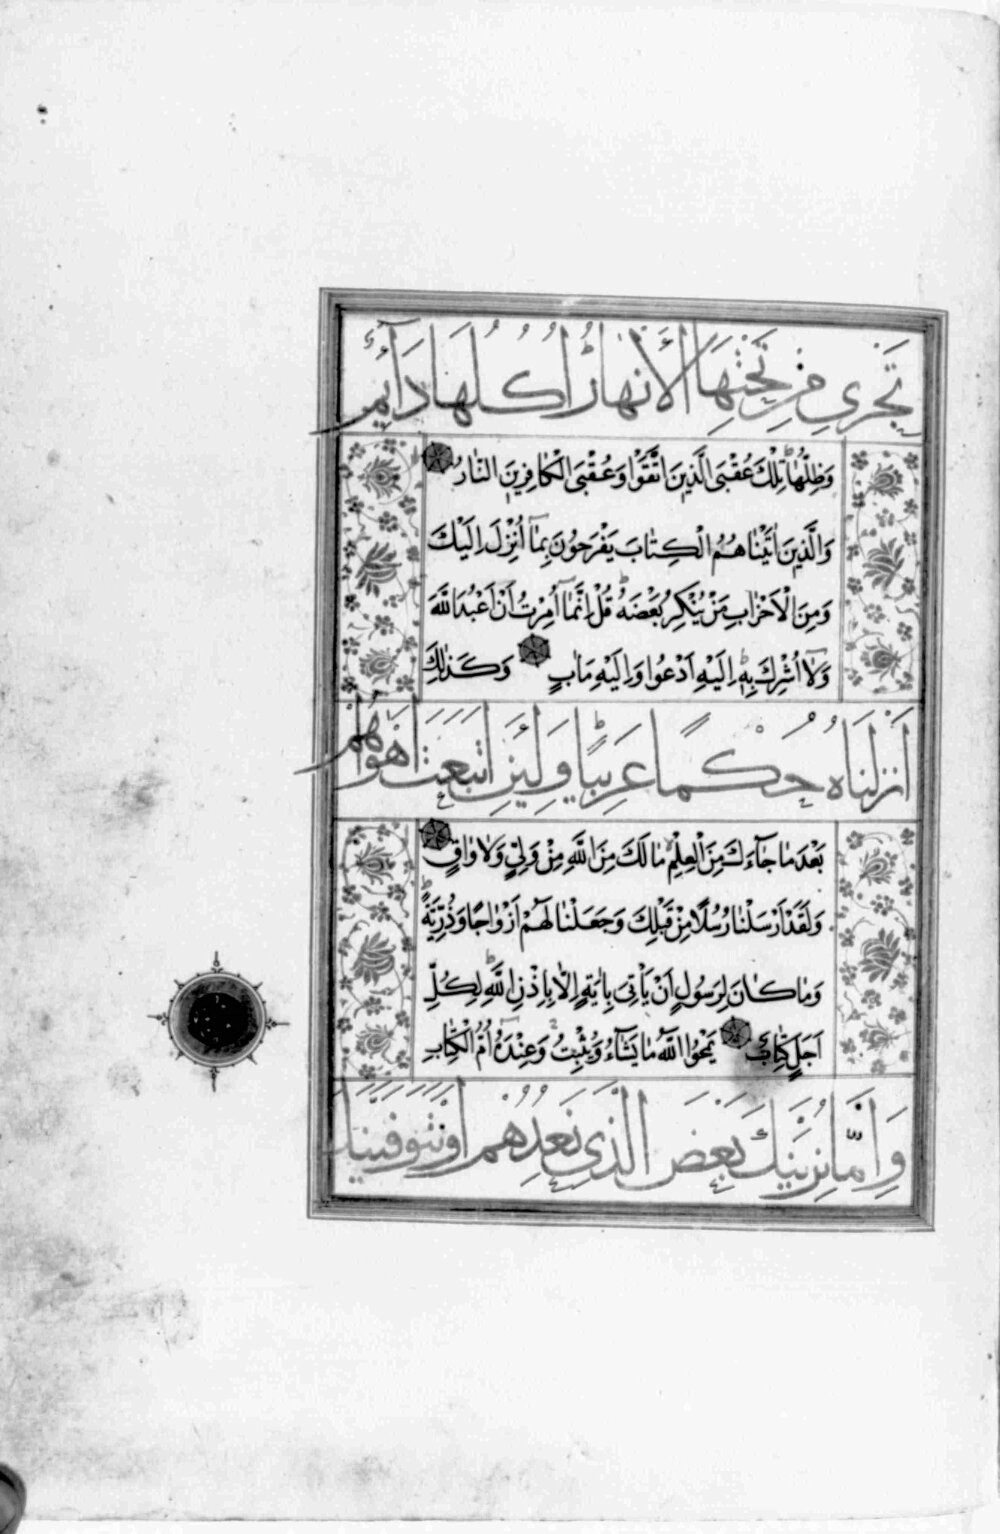 تَجْرِي مِنْ تَحْتِهَا الْأَنْهَارُ أُكُلُهَا دَآئِمٌ
وَظِلُّهَا تِلْكَ عُقْبَى الَّذِينَ اتَّقَوْا وَعُقْبَى الْكَافِرِينَ النَّارُ
وَالَّذِينَ اٰتَيْنَاهُمُ الْكِتَابَ يَفْرَحُونَ بِمَآ اُنْزِلَ اِلَيْكَ
وَمِنَ الْاَحْزَابِ مَنْ يُنْكِرُ بَعْضَهُ قُلْ اِنَّمَآ اُمِرْتُ اَنْ اَعْبُدَ اللَّهَ
وَلَآ اُشْرِكَ بِهِ اِلَيْهِ اَدْعُوا وَاِلَيْهِ مَاٰبِ وَكَذٰلِكَ
اَنْزَلْنَاهُ حُكْمًا عَرَبِيًّا وَلَئِنِ اتَّبَعْتَ اَهْوَآءَهُمْ
بَعْدَ مَا جَآءَكَ مِنَ الْعِلْمِ مَا لَكَ مِنَ اللَّهِ مِنْ وَلِيٍّ وَلَا وَاقٍ
وَلَقَدْ اَرْسَلْنَا رُسُلًا مِنْ قَبْلِكَ وَجَعَلْنَا لَهُمْ اَزْوَاجًا وَذُرِّيَّةً
وَمَا كَانَ لِرَسُولٍ اَنْ يَأْتِيَ بِاٰيَةٍ اِلَّا بِاِذْنِ اللَّهِ لِكُلِّ
اَجَلٍ كِتَابٌ يَمْحُوا اللَّهُ مَا يَشَآءُ وَيُثْبِتُ وَعِنْدَهُ اُمُّ الْكِتَابِ
وَاِنْ مَّا نُرِيَنَّكَ بَعْضَ الَّذِي نَعِدُهُمْ اَوْ نَتَوَفَّيَنَّكَ